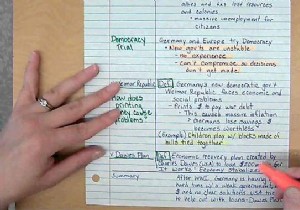 allies and has lost resources
and colonies
• massive unemployment for
citizens
Democracy
Trial
Germany and Europe try Democracy
• New gov'ts are unstable
- no experience
- Can't compromise so decisions
don't get made.
Weimar Republic
Def: Germany's new democratic gov't
Weimar Republic faces economic and
social problems
How does
printing
money cause
problems?
- Prints $ to pay war debt
- This causes massive inflation
- Germans lose savings $
becomes worthless"
(Example) Children play w/ blocks made of
bills tied together
Dawes Plan
Def: Economic recovery plan created by
Charles Dawes (USA) to loan
It works - Economy Stabilizes
Summary
After WWI, Germany is having a
hard time w/ a weak
and no clear solutions. USA
to help out with loans - Dawes Plan